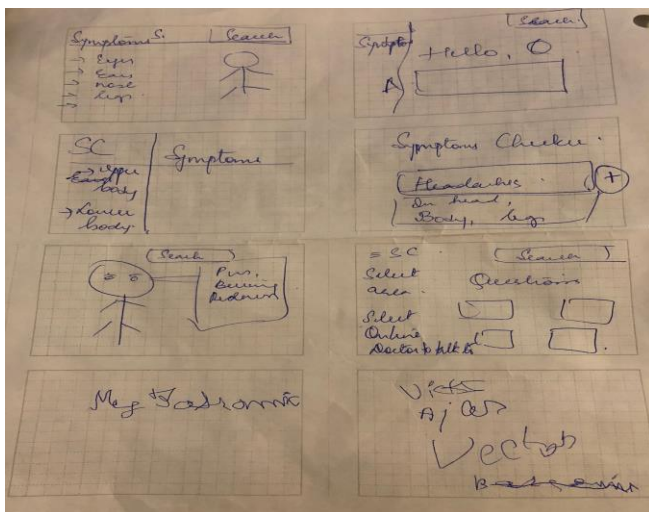 Symptoms S.
Search
Eyes
Ears
nose
legs
Search
Hello,
SC
Symptoms
→ Upper
body
→ Lower
body.
Symptoms Checker.
Headaches
+
On head,
Body, legs
Search
Pus,
Burning
Redness
= SC
Search
Select
area.
Questions
Select
Online
Doctor to talk to
Vector